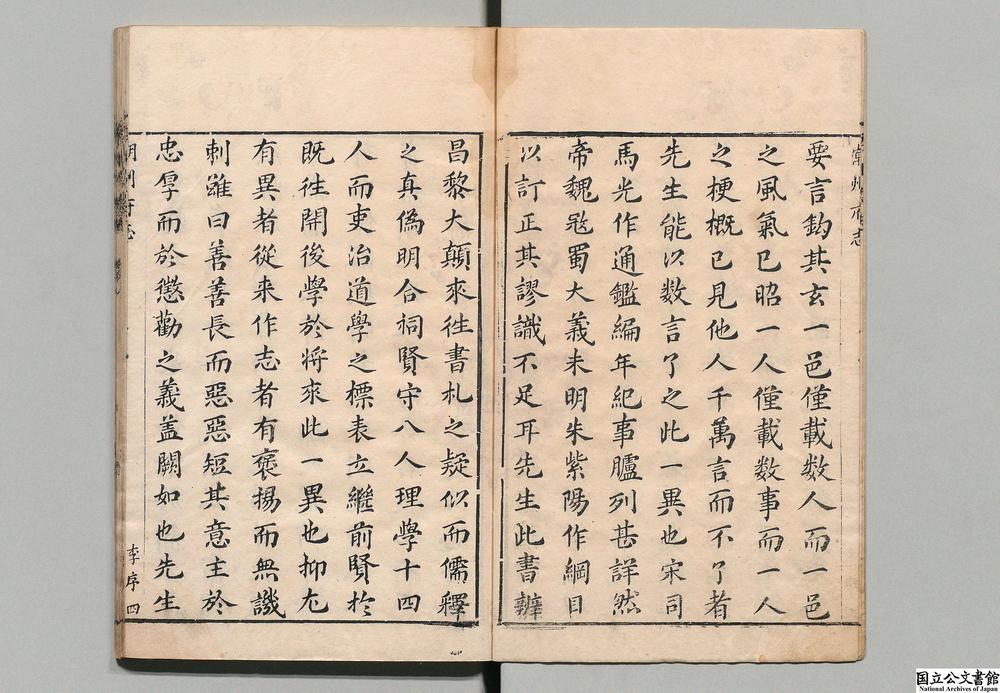 要言鈎其玄一邑僅載數人而一邑
之風氣已昭一人僅載數事而一人
之梗概已見他人千萬言而不了者
先生能以數言了之此一異也宋司
馬光作通鑑編年紀事臚列甚詳然
帝魏寇蜀大義未明朱紫陽作綱目
以訂正其謬識不足耳先生此書辨
昌黎大顛來往書札之疑似而儒釋
之真偽明合祠賢守八人理學十四
人而吏治道學之標表立繼前賢於
既往開後學於將來此一異也抑尤
有異者從来作志者有褒揚而無譏
刺雖曰善善長而惡惡短其意主於
忠厚而於懲勸之義盖闕如也先生
李序 四
国立公文書館
National Archives of Japan